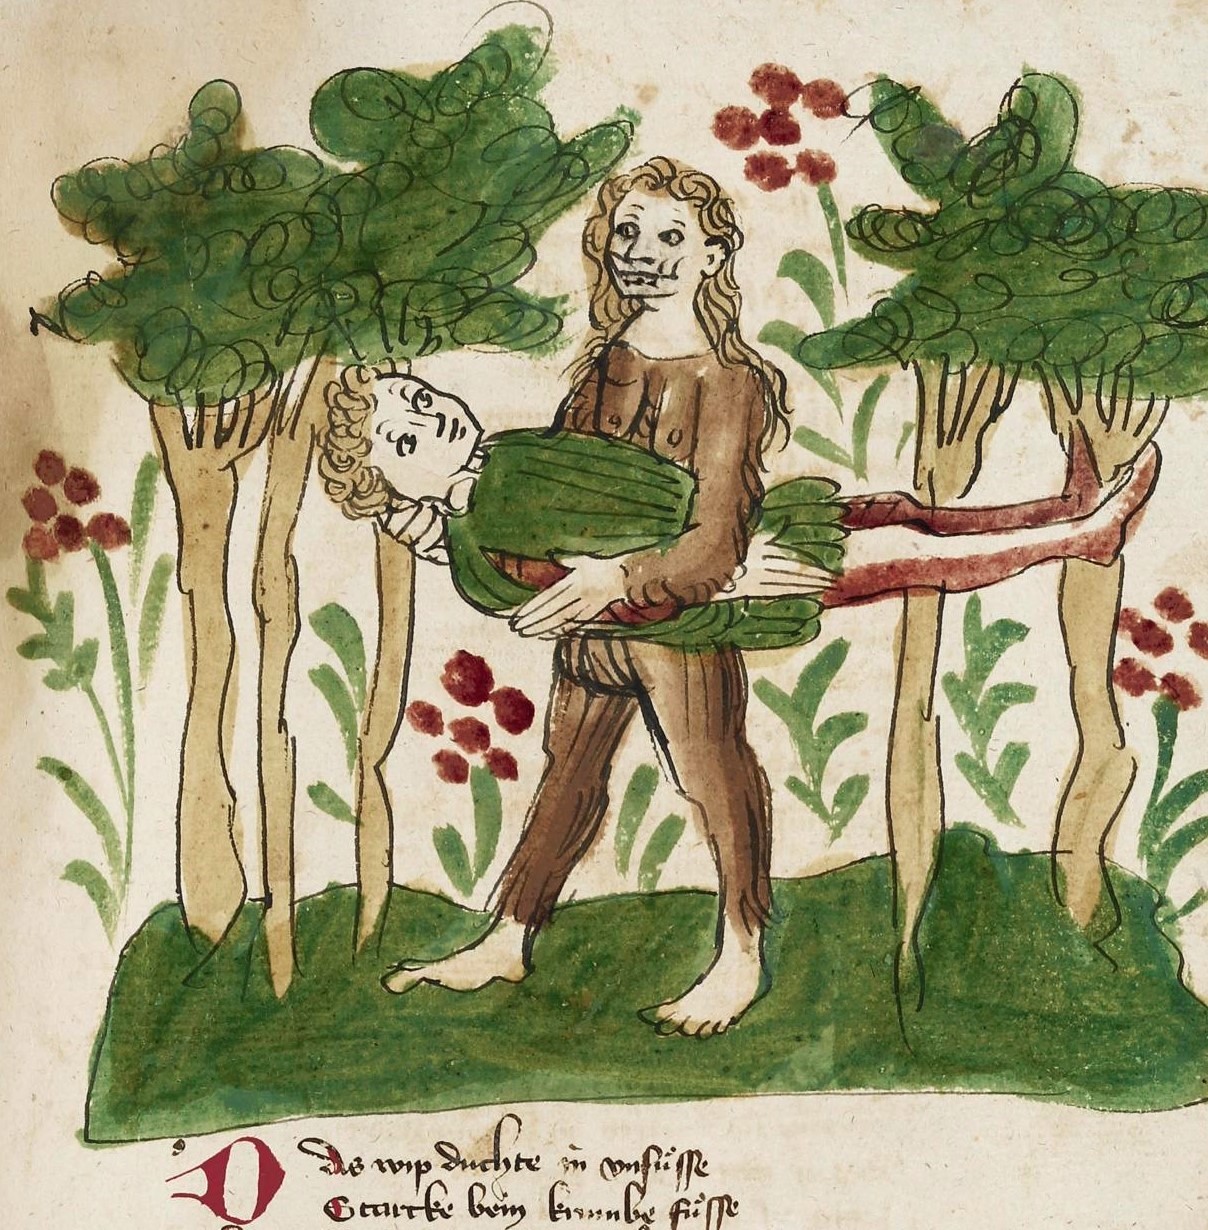 Das wip duchte in vnsuͤsse
Starcke bein krumbe fuͤsse